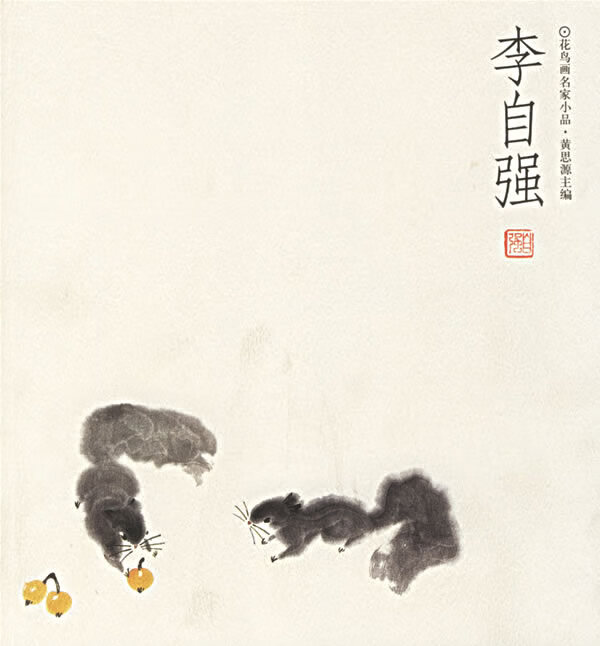 ⊙花鸟画名家小品·黄思源主编
李自强
自强